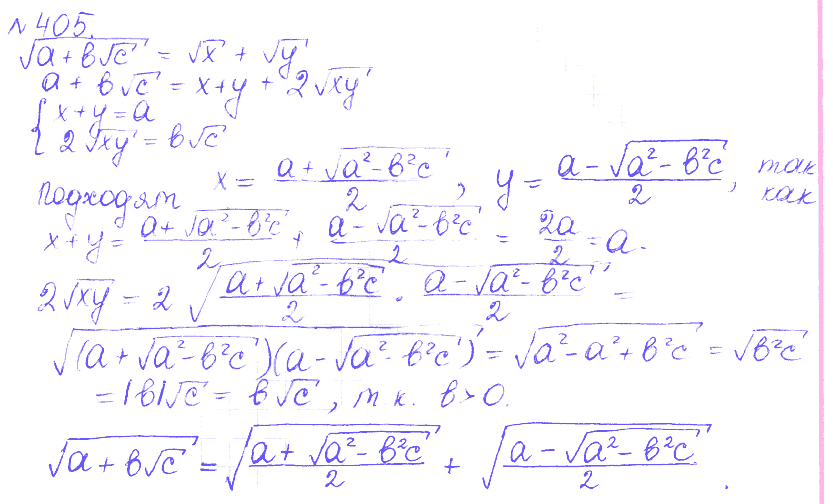 №405.
√(a + b√c) = √x + √y
a + b√c = x+y + 2√(xy)
{ x+y = a
2√(xy) = b√c
подходят x = (a + √(a² - b²c))/2, y = (a - √(a² - b²c))/2, так как
x+y = (a + √(a² - b²c))/2 + (a - √(a² - b²c))/2 = 2a/2 = a.
2√(xy) = 2√((a + √(a² - b²c))/2 · (a - √(a² - b²c))/2) =
√((a + √(a² - b²c))(a - √(a² - b²c))) = √(a² - a² + b²c) = √(b²c)
= |b|√c = b√c, т к. b > 0.
√(a + b√c) = √((a + √(a² - b²c))/2) + √((a - √(a² - b²c))/2).